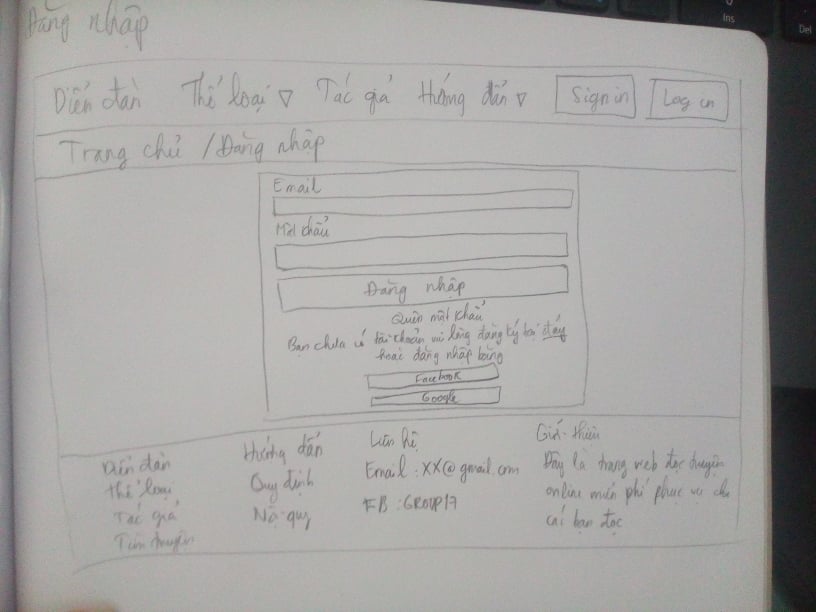 Đăng nhập
Diễn đàn Thể loại ▽ Tác giả Hướng dẫn ▽ Sign in Log in
Trang chủ / Đăng nhập
Email
Mật khẩu
Đăng nhập
Quên mật khẩu
Bạn chưa có tài khoản vui lòng đăng ký tại đây
hoặc đăng nhập bằng
Facebook
Google
Diễn đàn
Thể loại
Tác giả
Tìm truyện
Hướng dẫn
Quy định
Nội quy
Liên hệ
Email : XX@gmail.com
FB : GROUP17
Giới thiệu
Đây là trang web đọc truyện
online miễn phí phục vụ cho
các bạn đọc
Ins
Del